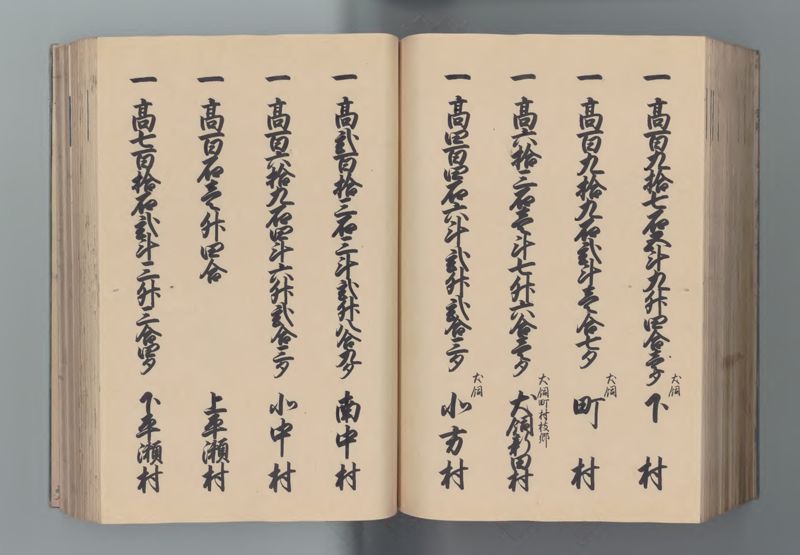 一 高百九拾七石五斗九升四合壱夕 犬飼 下村
一 高百九拾九石弐斗壱合七夕 犬飼 町村
一 高六拾三石壱斗七升六合壱夕 犬飼町村枝郷 犬飼新田村
一 高四百四石六斗弐升弐合三夕 犬飼 北方村
一 高弐百拾三石三斗弐升八合九夕 南中村
一 高百六拾九石四斗六升弐合三夕 北中村
一 高百石壱升四合 上平瀬村
一 高七百拾石弐斗三升三合四夕 下平瀬村